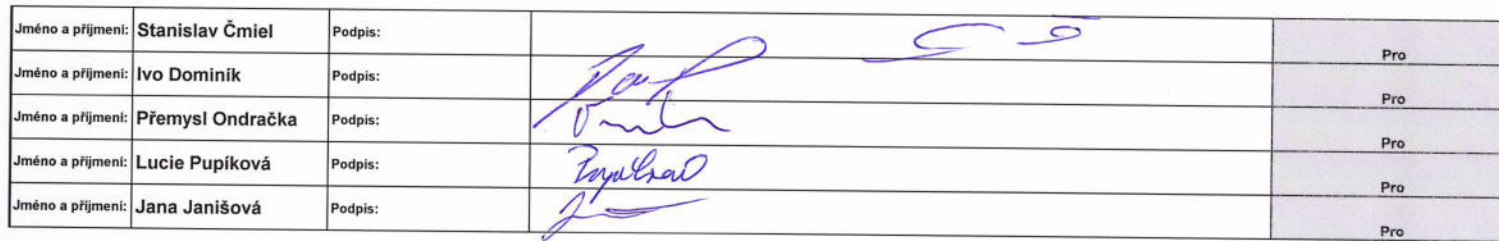 Jméno a příjmení: Stanislav Čmiel Podpis: Pro
Jméno a příjmení: Ivo Dominík Podpis: Pro
Jméno a příjmení: Přemysl Ondračka Podpis: Pro
Jméno a příjmení: Lucie Pupíková Podpis: Pro
Jméno a příjmení: Jana Janišová Podpis: Pro